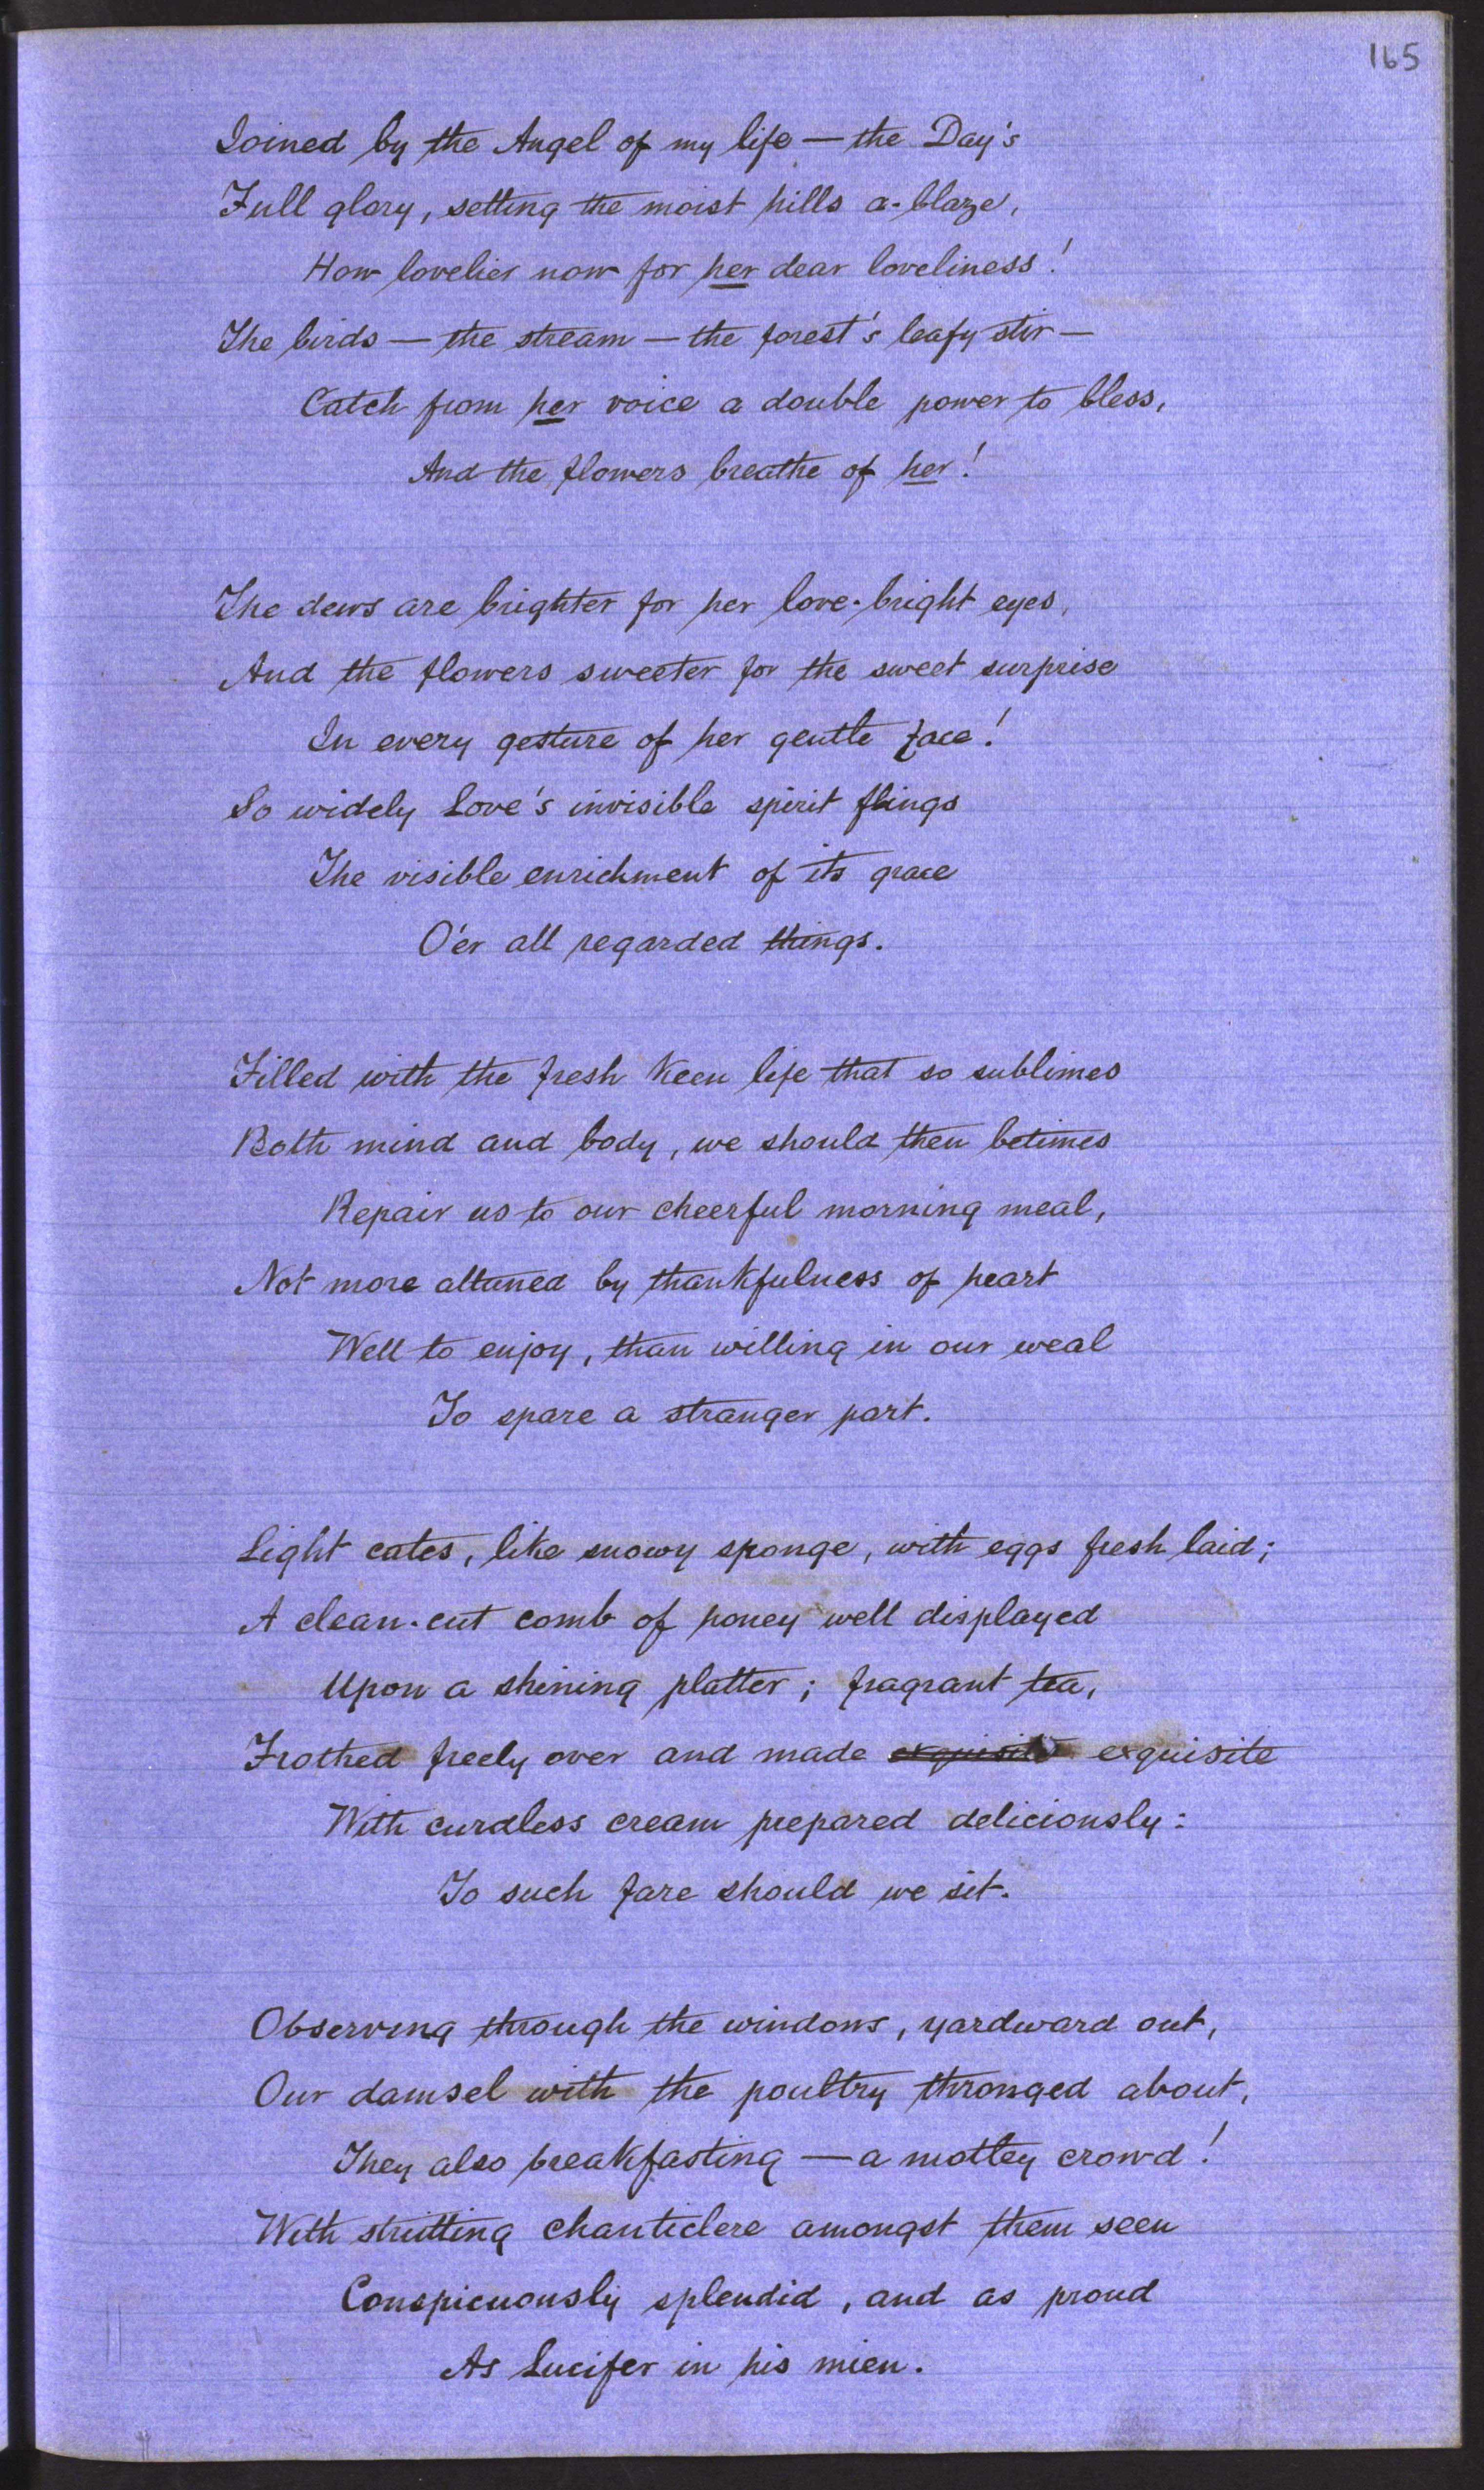 165
Joined by the Angel of my life — the Day's
Full glory, setting the moist hills a-blaze,
How lovelier now for her dear loveliness!
The birds — the stream — the forest's leafy stir —
Catch from her voice a double power to bless,
And the flowers breathe of her!
The dews are brighter for her love-bright eyes,
And the flowers sweeter for the sweet surprise
In every gesture of her gentle face!
So widely Love's invisible spirit flings
The visible enrichment of its grace
O'er all regarded things.
Filled with the fresh keen life that so sublimes
Both mind and body, we should then betimes
Repair us to our cheerful morning meal,
Not more attuned by thankfulness of heart
Well to enjoy, than willing in our weal
To spare a stranger part.
Light cates, like snowy sponge, with eggs fresh laid;
A clean-cut comb of honey well displayed
Upon a shining platter; fragrant tea,
Frothed freely over and made exquisite exquisite
With curdless cream prepared deliciously:
To such fare should we sit.
Observing through the windows, yardward out,
Our damsel with the poultry thronged about,
They also breakfasting — a motley crowd!
With strutting chanticlere amongst them seen
Conspicuously splendid, and as proud
As Lucifer in his mien.